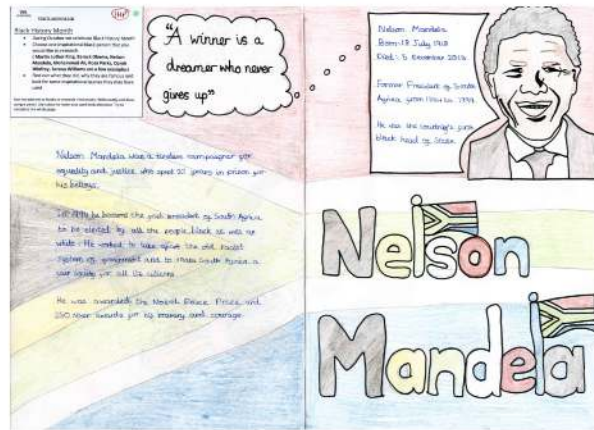 Black History Month
During October we celebrate Black History Month
Choose one inspirational black person that you would like to research
( Martin Luther King, Barack Obama, Nelson Mandela, Mohammed Ali, Rosa Parks, Lewis Hamilton, Serena Williams are a few examples)
"A winner is a
dreamer who never
gives up"
Nelson Mandela
Born: 18 July 1918
Died: 5 December 2013
Former President of South
Africa from 1994 to 1999.
He was the country's first
black head of state.
Nelson Mandela was a tireless campaigner for
equality and justice who spent 27 years in prison for
his beliefs.
In 1994 he became the first president of South Africa
to be elected by all the people, black as well as
white. He worked to take apart the old racist
system of government and to make South Africa a
safe society for all its citizens.
He was awarded the Nobel Peace Prize and
250 other awards for his bravery and courage.
Nelson
Mandela